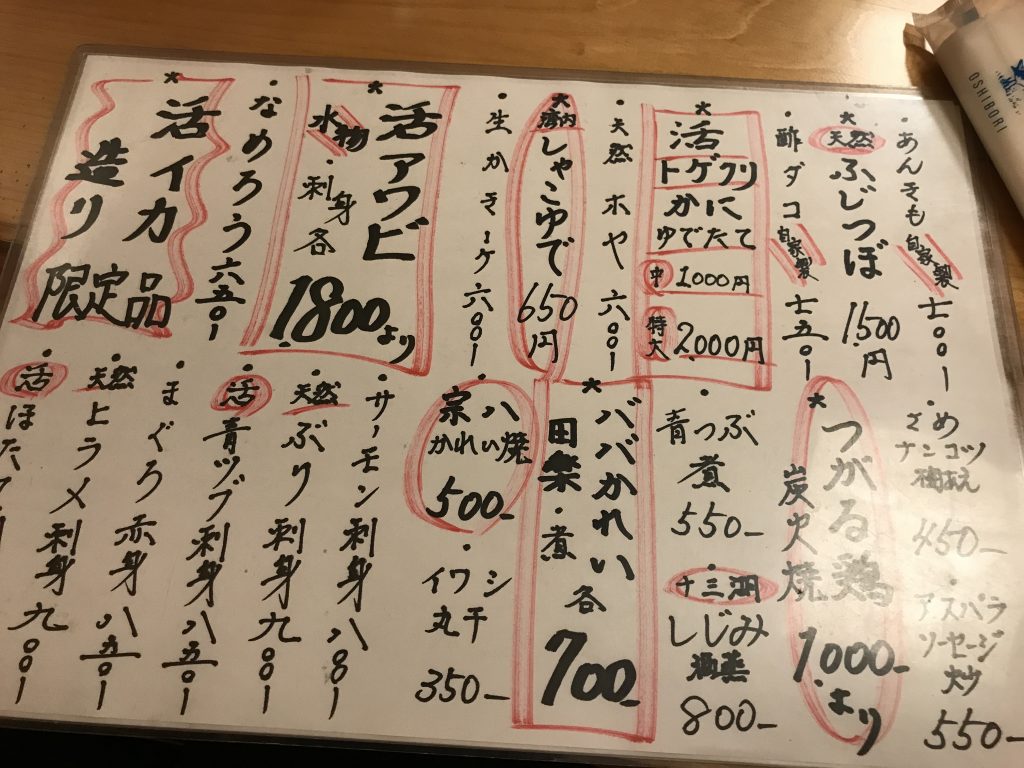 ・あんきも 自家製 七〇〇ー
★天然 ふじつぼ 1,500円
・酢ダコ 自家製 七五〇ー
★活
トゲクリ
かに
ゆでたて
中 1000円
特大 2,000円
・天然ホヤ 六〇〇ー
★湾内 しゃこゆで 650円
・生かき一ケ 六〇〇ー
★活アワビ
水物・刺身
各
1800より
・なめろう 六五〇ー
★活イカ
造り
限定品
・さめ
ナンコツ
梅あえ
450ー
・アスパラ
ソーセージ
炒
550ー
★つがる鶏
炭火焼
1,000ーより
・青つぶ
煮
550ー
十三湖
しじみ
酒蒸
800ー
★ババかれい
田楽・煮
各
700ー
宗八
かれい焼
500ー
・イワシ
丸干
350ー
・サーモン刺身 八〇〇ー
・天然ぶり刺身 九〇〇ー
・活青ツブ刺身 八五〇ー
・まぐろ赤身 八五〇ー
・天然ヒラメ刺身 九〇〇ー
・活ほた
OSHIBORI